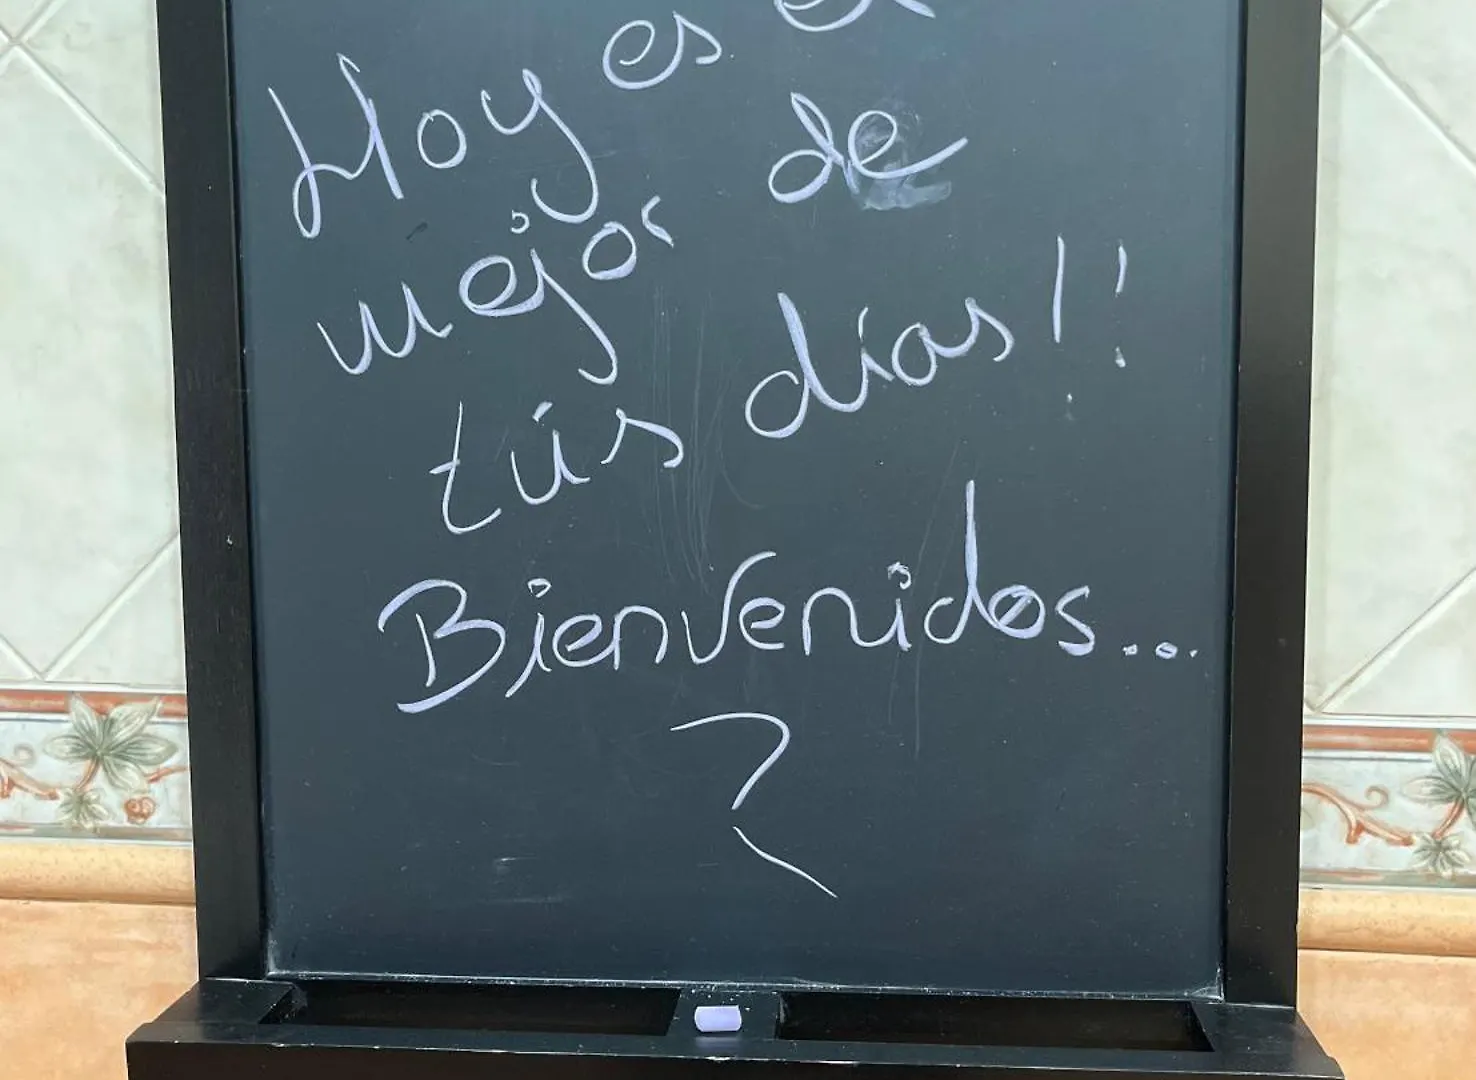 Hoy es el
mejor de
tús días!!
Bienvenidos...